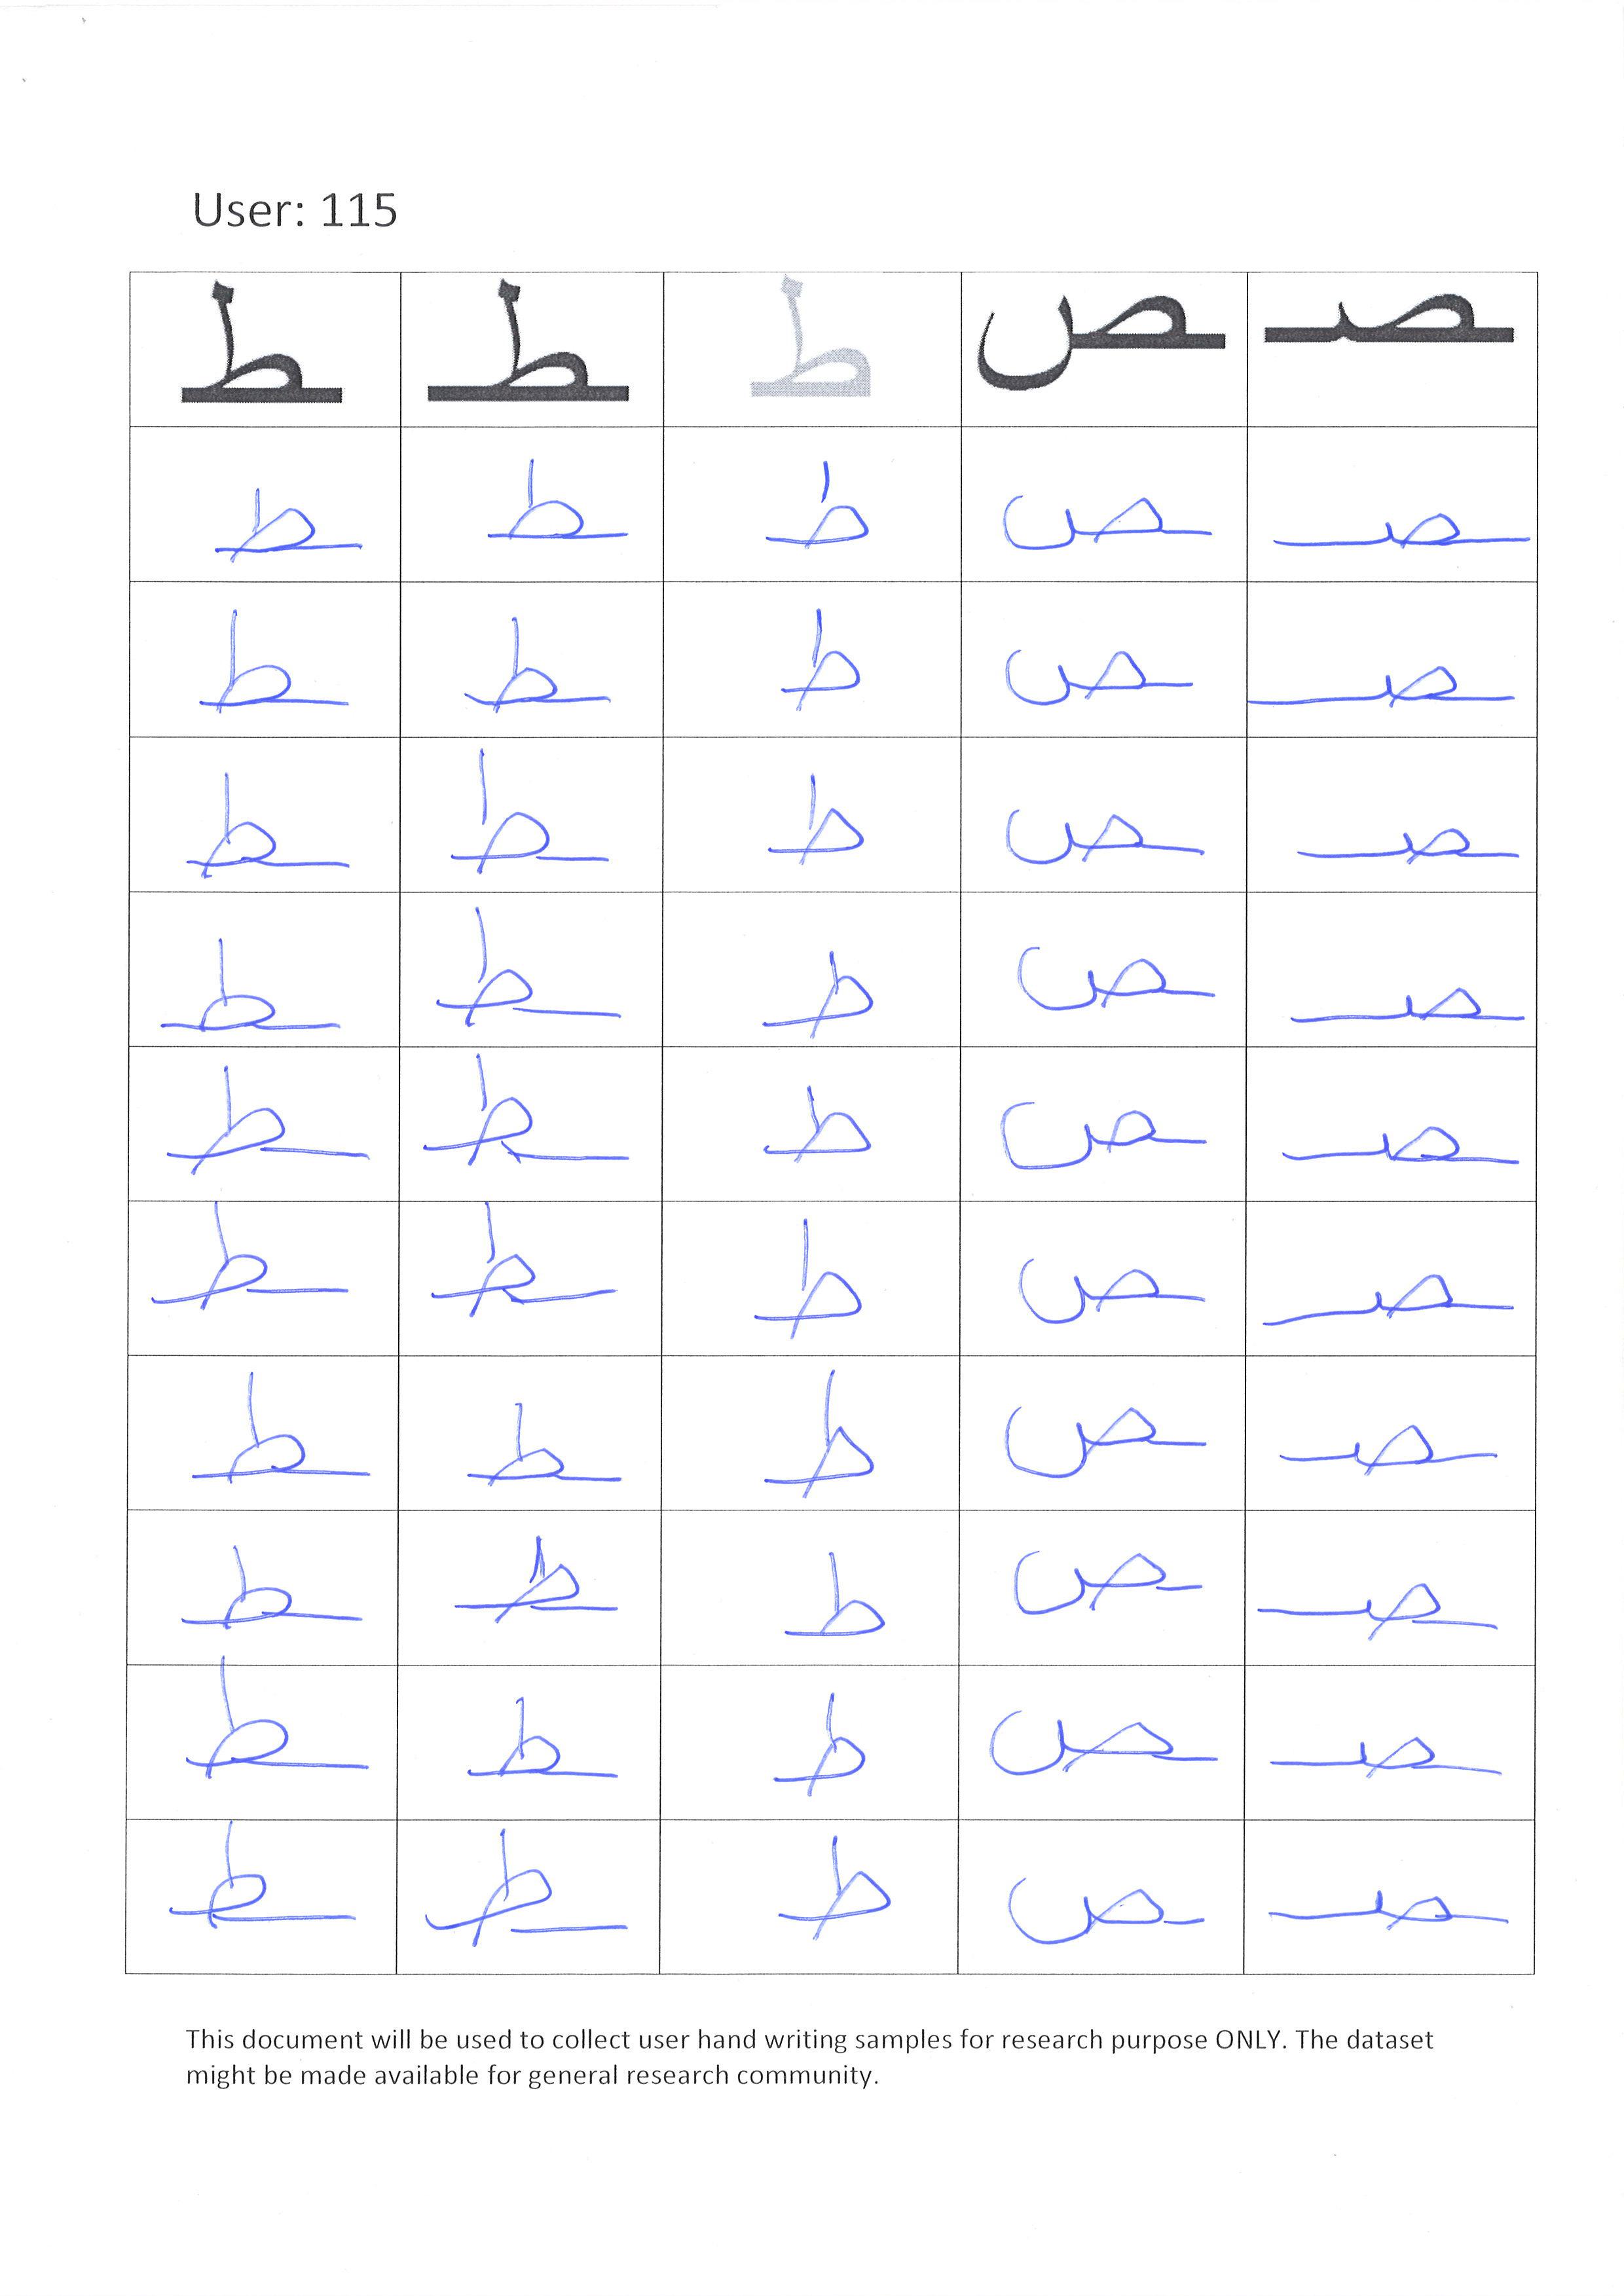 User: 115
ـط ـطـ ط ـص ـصـ
ـط ـطـ ط ـص ـصـ
ـط ـطـ ط ـص ـصـ
ـط ـطـ ط ـص ـصـ
ـط ـطـ ط ـص ـصـ
ـط ـطـ ط ـص ـصـ
ـط ـطـ ط ـص ـصـ
ـط ـطـ ط ـص ـصـ
ـط ـطـ ط ـص ـصـ
ـط ـطـ ط ـص ـصـ
ـط ـطـ ط ـص ـصـ
This document will be used to collect user hand writing samples for research purpose ONLY. The dataset
might be made available for general research community.